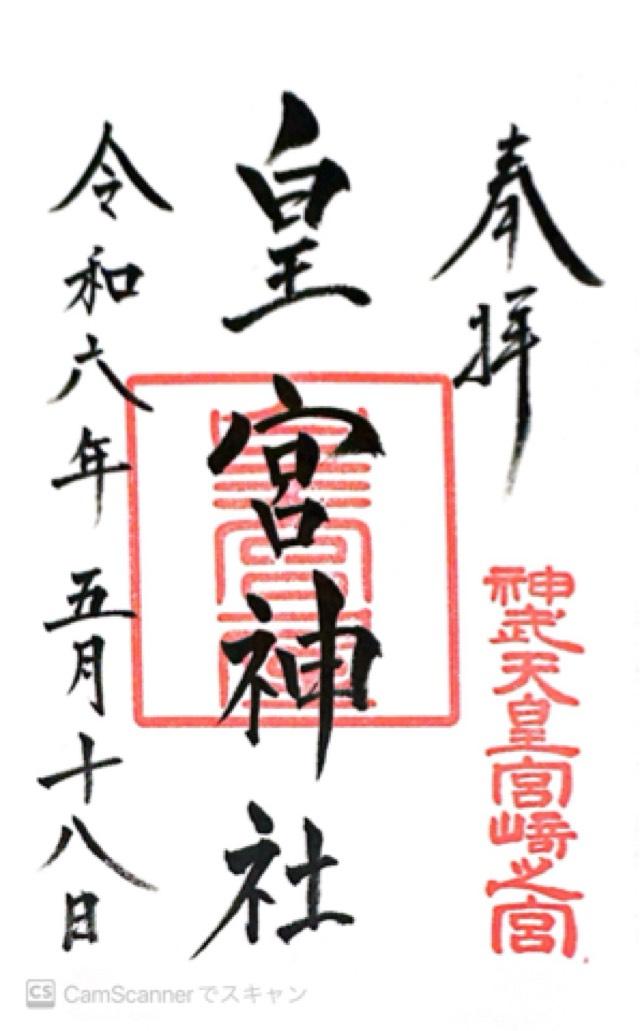 奉拝
神武天皇宮崎之宮
皇宮神社
令和六年五月十八日
CS CamScannerでスキャン